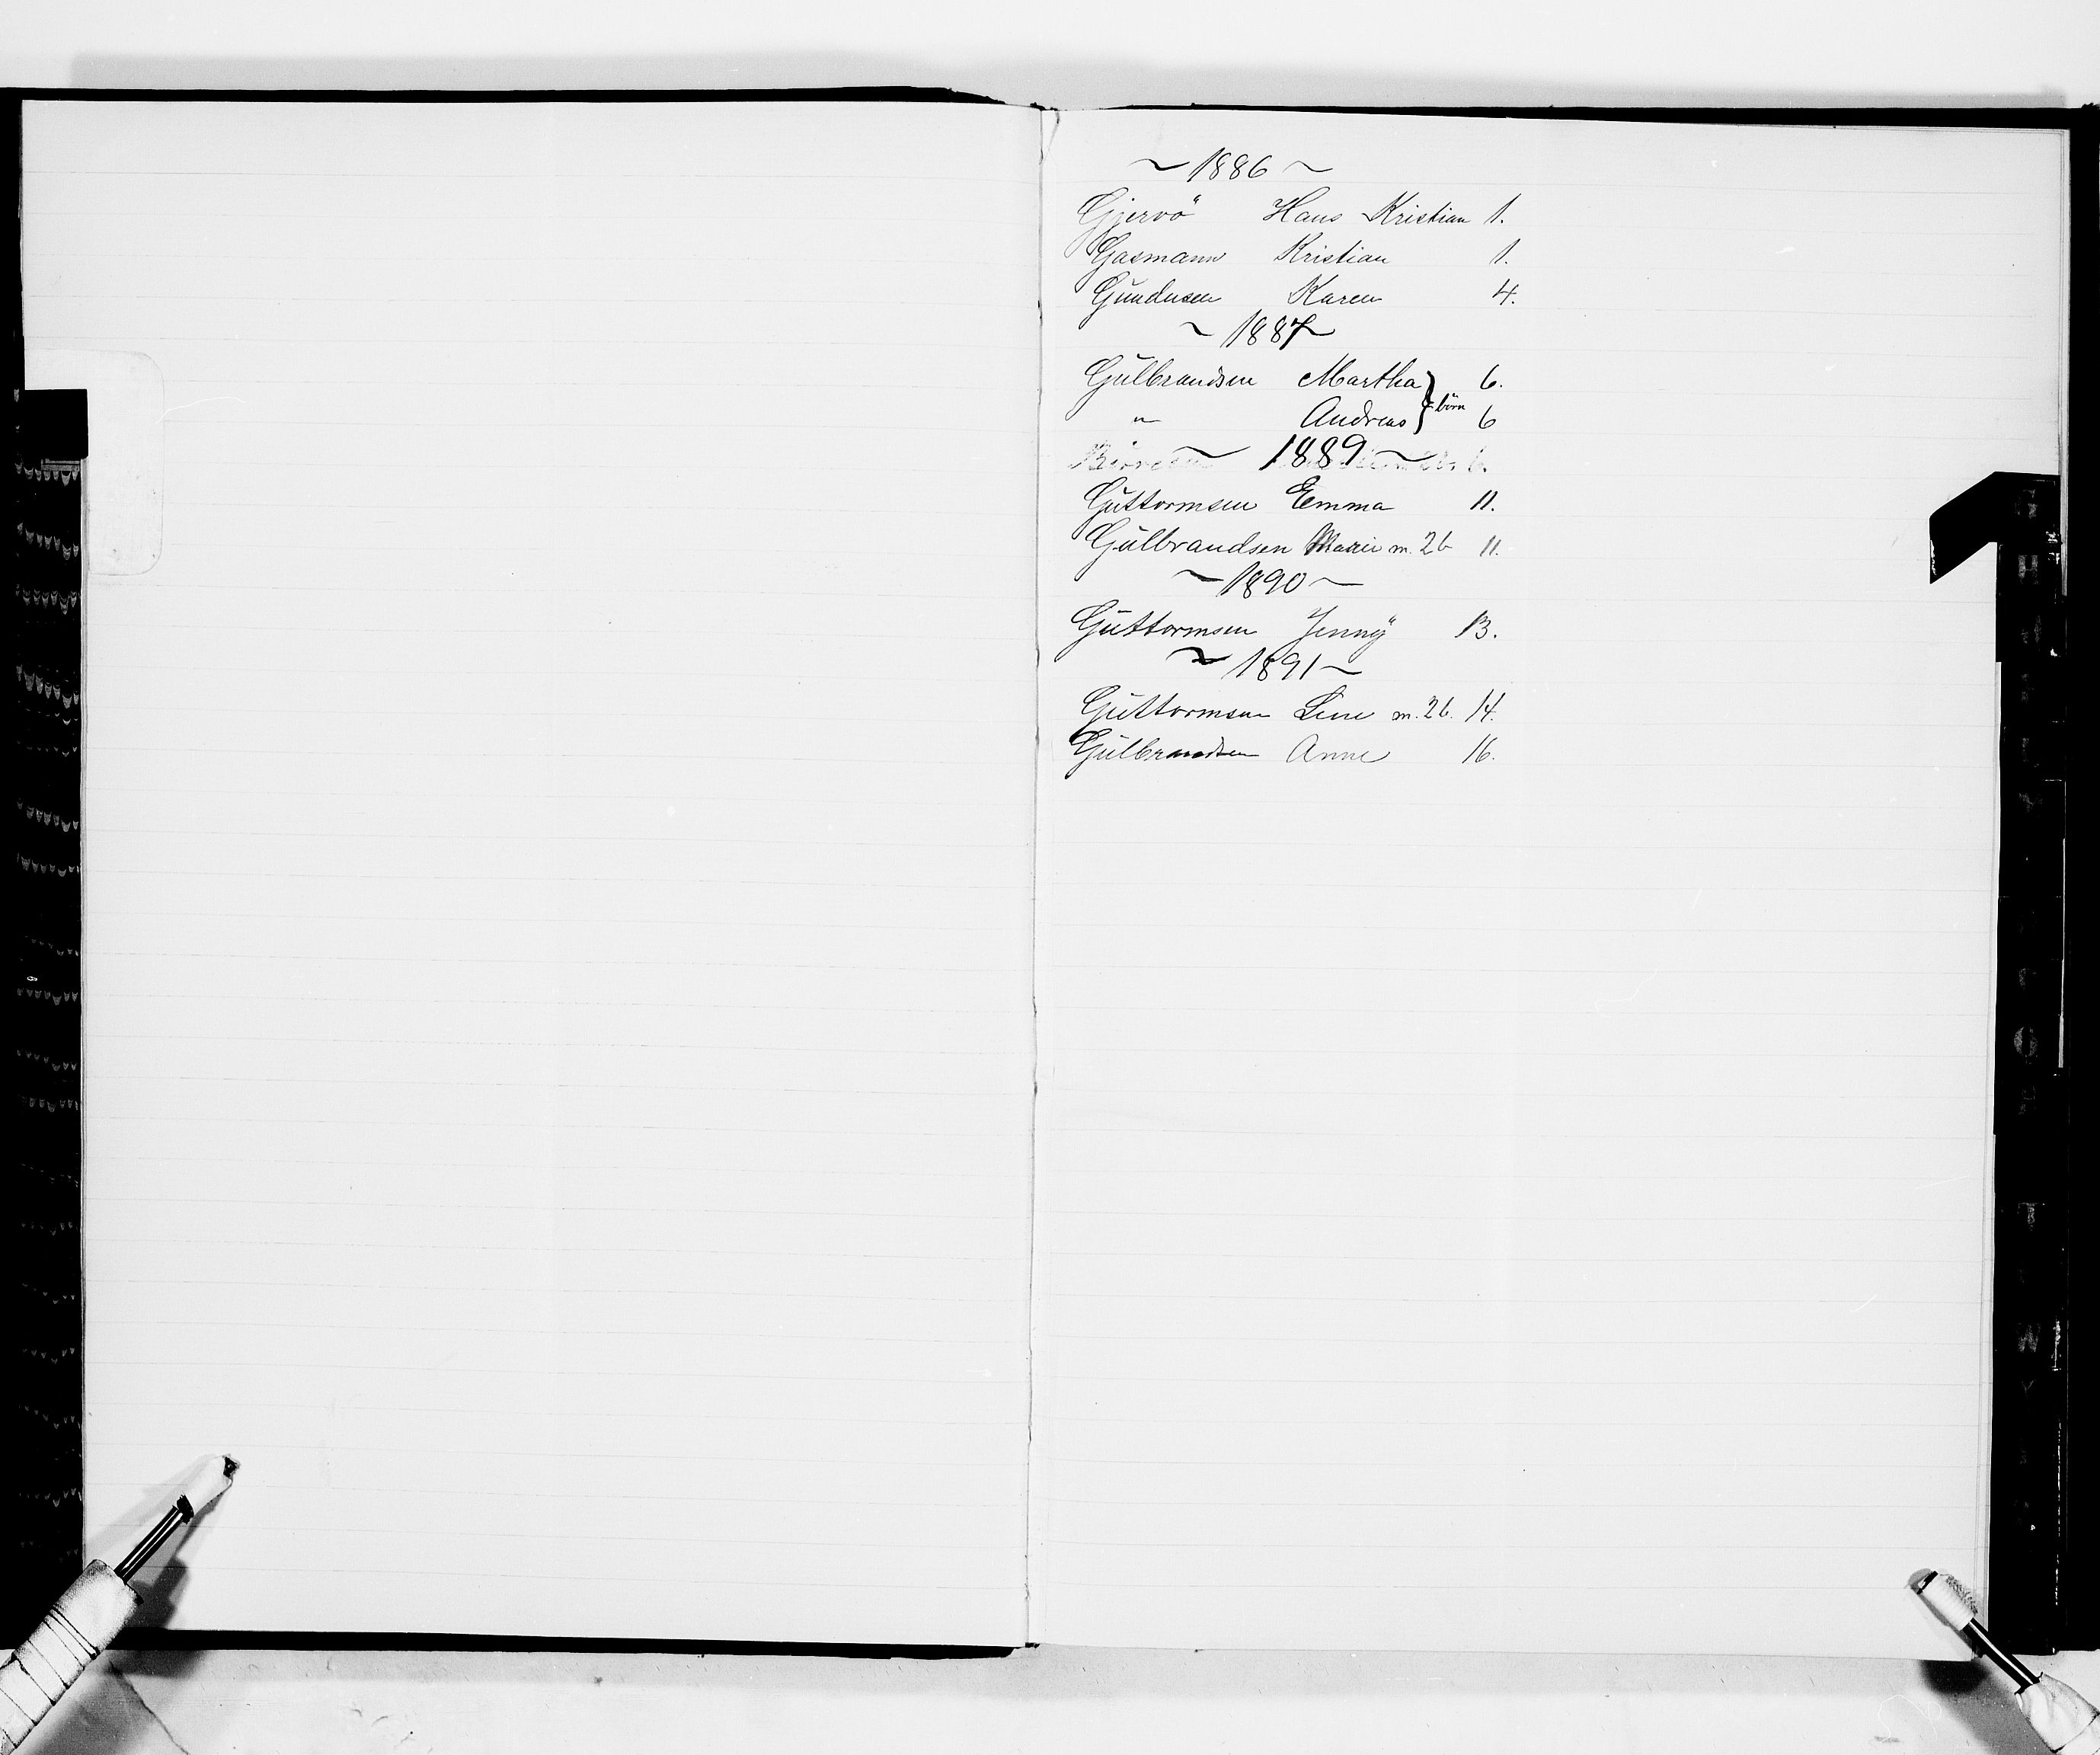 ~ 1886 ~
Gjervö Hans Kristian 1.
Gasmann Kristian 1.
Gundusen Karen 4.
~ 1887 ~
Gulbrandsen Martha } börn 6.
" Andreas } 6
~ 1889 ~
Guttormsen Emma 11.
Gulbrandsen Marie m. 2b 11.
~ 1890 ~
Guttormsen Jenny 13.
~ 1891 ~
Guttormsen Line m. 2b. 14.
Gulbrandsen Anne 16.